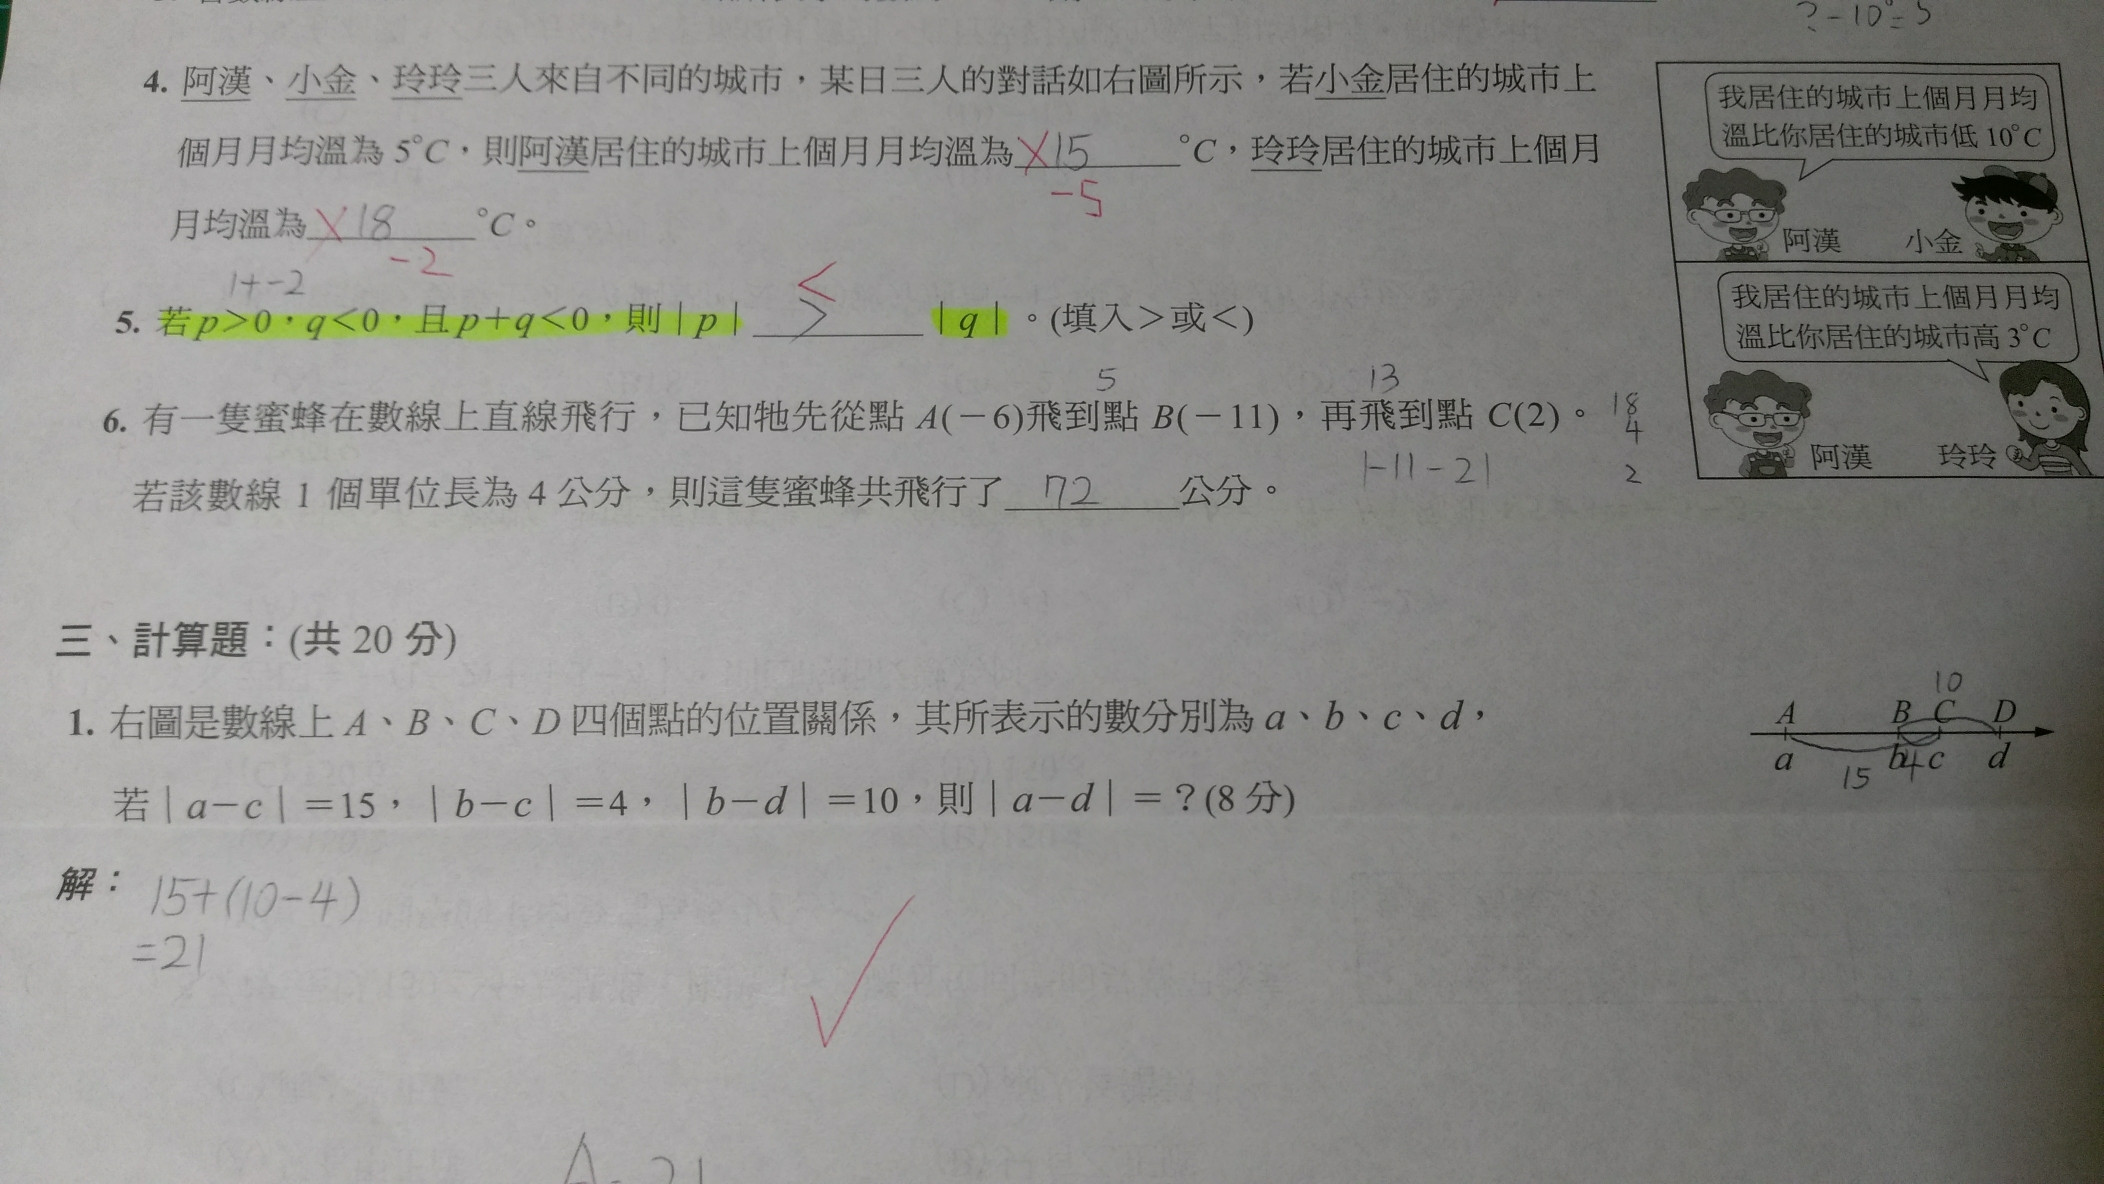 ?-10°=5
4. 阿漢、小金、玲玲三人來自不同的城市，某日三人的對話如右圖所示，若小金居住的城市上
個月月均溫為 5°C，則阿漢居住的城市上個月月均溫為 15 °C，玲玲居住的城市上個月
-5
月均溫為 18 °C。
-2
我居住的城市上個月月均
溫比你居住的城市低 10°C
阿漢 小金
我居住的城市上個月月均
溫比你居住的城市高 3°C
阿漢 玲玲
1+-2
<
5. 若p>0，q<0，且p+q<0，則|p| > |q|。(填入>或<)
5 13
6. 有一隻蜜蜂在數線上直線飛行，已知牠先從點 A(-6)飛到點 B(-11)，再飛到點 C(2)。
18
4
2
|-11-2|
若該數線 1 個單位長為 4 公分，則這隻蜜蜂共飛行了 72 公分。
三、計算題：(共 20 分)
1. 右圖是數線上 A、B、C、D 四個點的位置關係，其所表示的數分別為 a、b、c、d，
若|a-c|=15，|b-c|=4，|b-d|=10，則|a-d|=？(8 分)
10
A B C D
a b c d
15 4
解：
15+(10-4)
=21